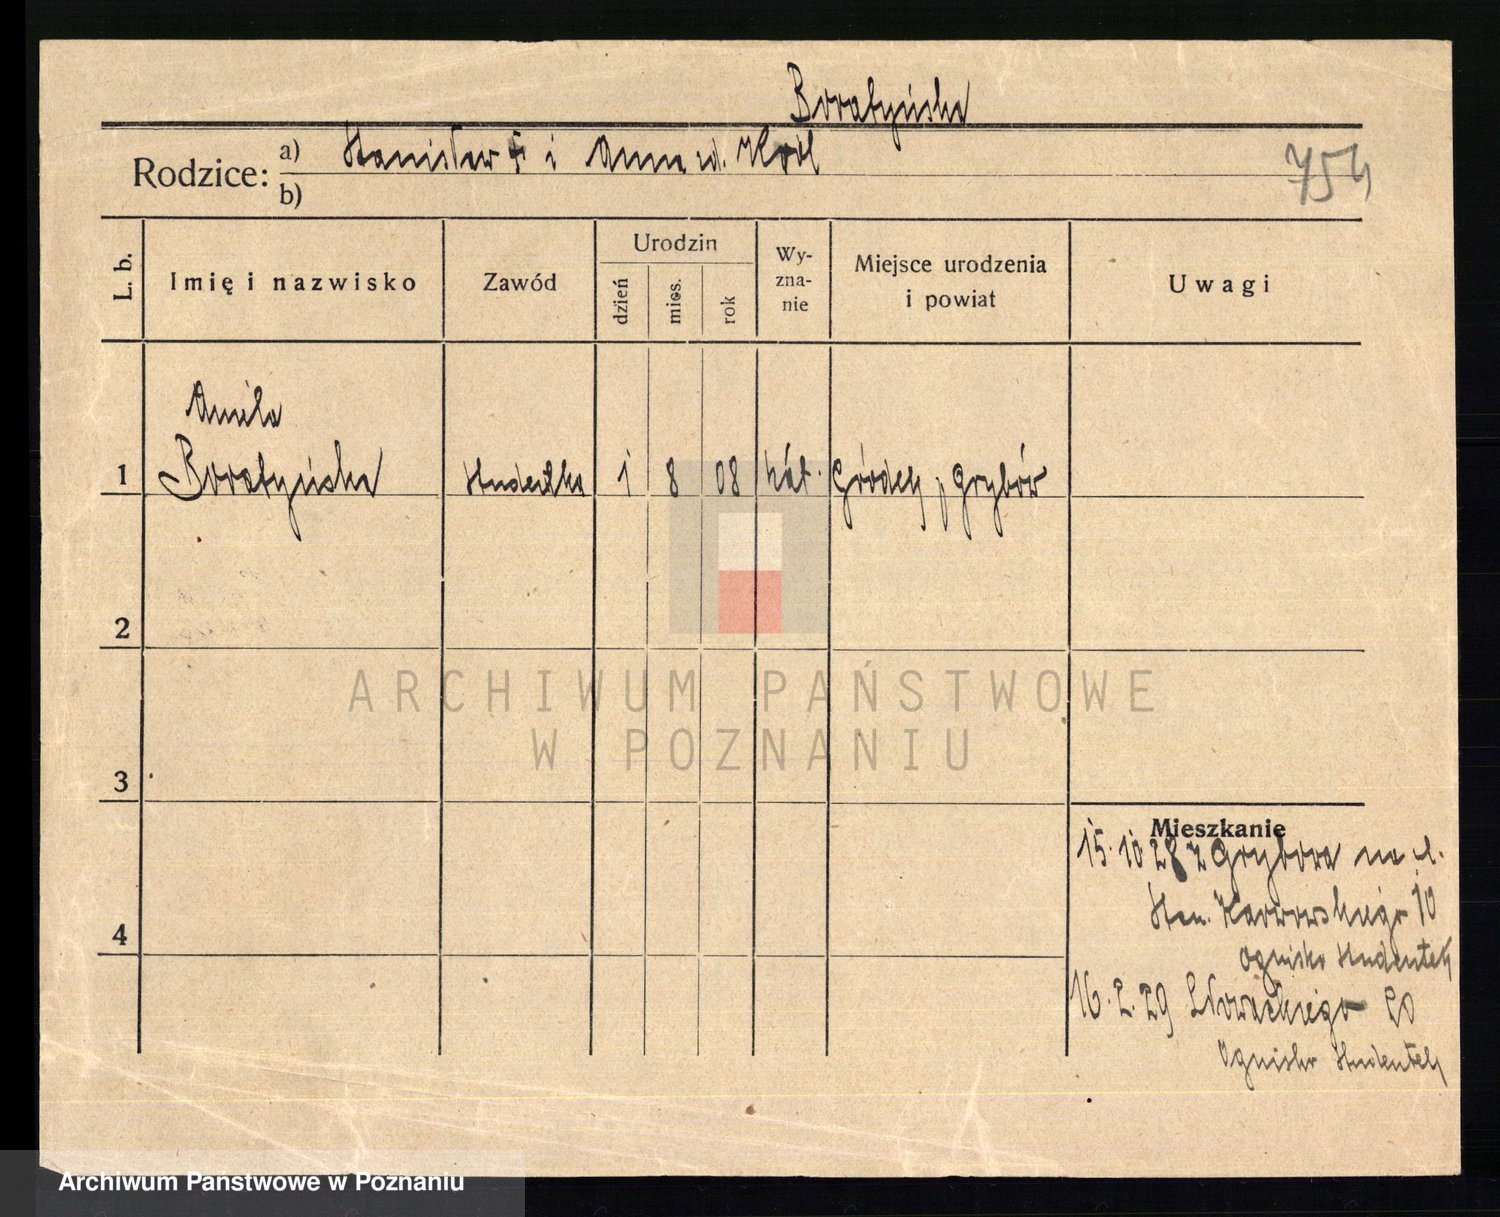 Boratyńska
Rodzice: a) Stanisław † i Anna zd. Król
b)
754
L. b.
Imię i nazwisko
Zawód
Urodzin
dzień
mies.
rok
Wy-
zna-
nie
Miejsce urodzenia
i powiat
Uwagi
Aniela
1 Boratyńska studentka 1 8 08 kat. Gródek p Grybów
2
3
4
Mieszkanie
15.10 28 z Grybowa na ul.
Stan. Karwowskiego 10
Ognisko Studentek
16.2.29 Słowackiego 20
Ognisko Studentek
ARCHIWUM PAŃSTWOWE
W POZNANIU
Archiwum Państwowe w Poznaniu